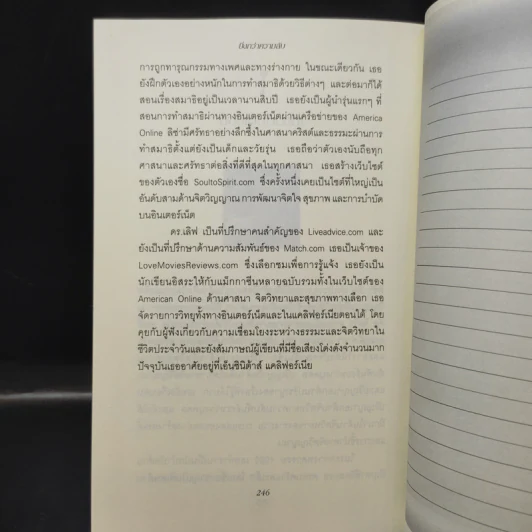 ยิ่งกว่าความลับ
การถูกทารุณกรรมทางเพศและทางร่างกาย ในขณะเดียวกัน เธอ
ยังฝึกตัวเองอย่างหนักในการทำสมาธิด้วยวิธีต่างๆ และต่อมาก็ได้
สอนเรื่องสมาธิอยู่เป็นเวลานานสิบปี เธอยังเป็นผู้นำรุ่นแรกๆ ที่
สอนการทำสมาธิผ่านทางอินเตอร์เน็ตผ่านเครือข่ายของ America
Online ลิซ่ามีศรัทธาอย่างลึกซึ้งในศาสนาคริสต์และธรรมะผ่านการ
ทำสมาธิตั้งแต่ยังเป็นเด็กและวัยรุ่น เธอถือว่าตัวเองนับถือทุก
ศาสนาและศรัทธาต่อสิ่งที่ดีที่สุดในทุกศาสนา เธอสร้างเว็บไซต์
ของตัวเองชื่อ SoultoSpirit.com ซึ่งครั้งหนึ่งเคยเป็นไซต์ที่ใหญ่เป็น
อันดับสามด้านจิตวิญญาณ การพัฒนาจิตใจ สุขภาพ และการบำบัด
บนอินเตอร์เน็ต
ดร.เลิฟ เป็นที่ปรึกษาคนสำคัญของ Liveadvice.com และ
ยังเป็นที่ปรึกษาด้านความสัมพันธ์ของ Match.com เธอเป็นเจ้าของ
LoveMoviesReviews.com ซึ่งเลือกชมเพื่อการรู้แจ้ง เธอยังเป็น
นักเขียนอิสระให้กับแม็กกาซีนหลายฉบับรวมทั้งในเว็บไซต์ของ
American Online ด้านศาสนา จิตวิทยาและสุขภาพทางเลือก เธอ
จัดรายการวิทยุทั้งทางอินเตอร์เน็ตและในแคลิฟอร์เนียตอนใต้ โดย
คุยกับผู้ฟังเกี่ยวกับความเชื่อมโยงระหว่างธรรมะและจิตวิทยาใน
ชีวิตประจำวันและยังสัมภาษณ์ผู้เขียนที่มีชื่อเสียงโด่งดังจำนวนมาก
ปัจจุบันเธออาศัยอยู่ที่เอ็นซินิต้าส์ แคลิฟอร์เนีย
246